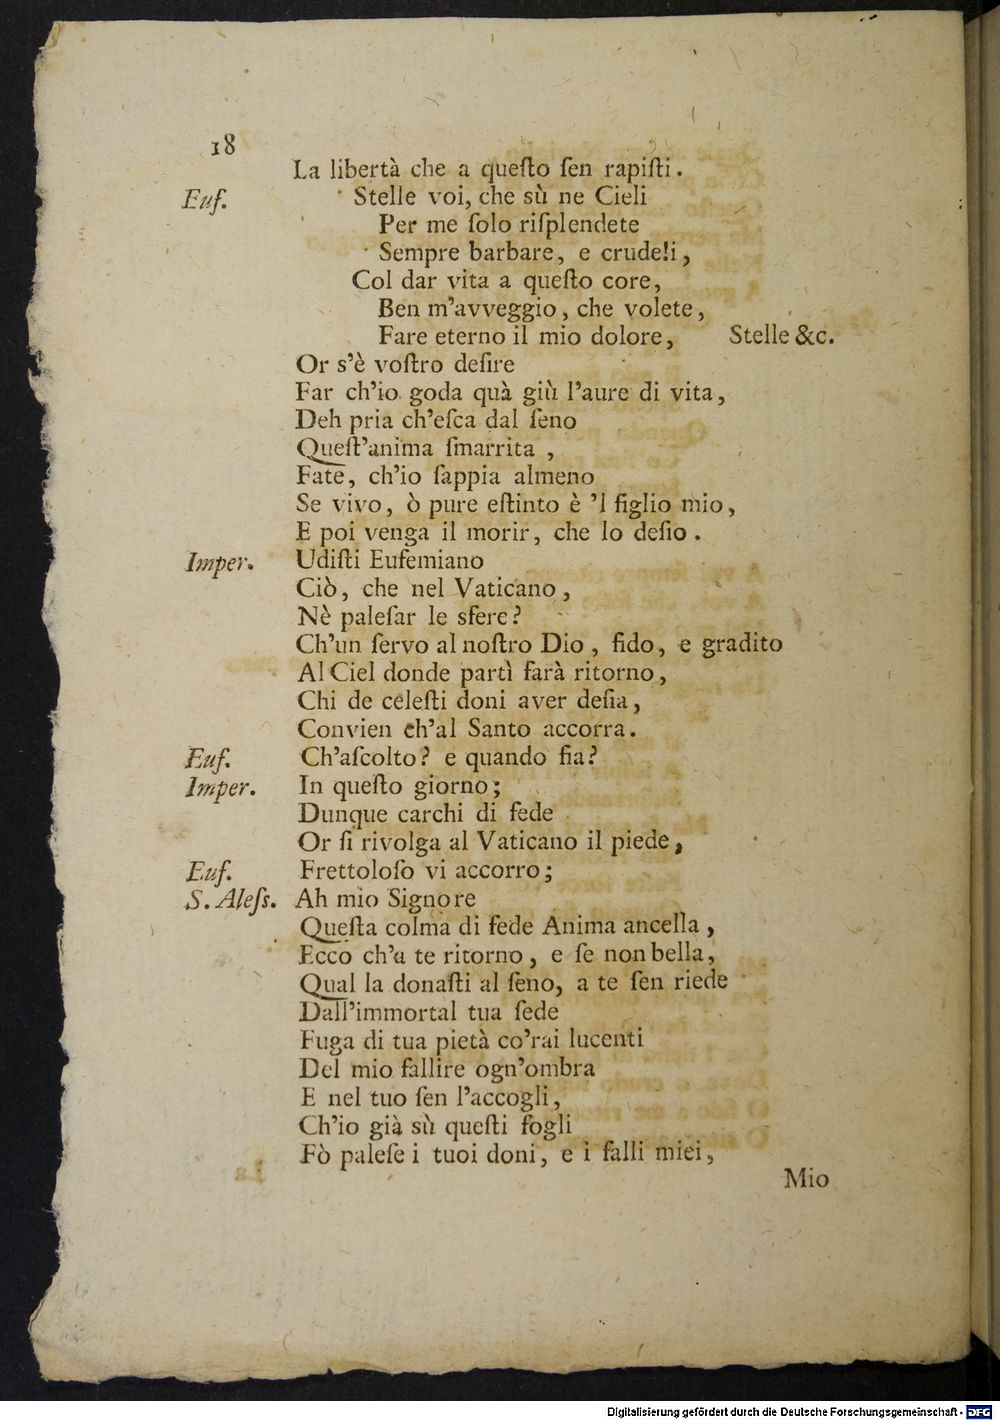 18
La libertà che a queſto ſen rapiſti.
Euf. Stelle voi, che sù ne Cieli
Per me ſolo riſplendete
Sempre barbare, e crudeli,
Col dar vita a queſto core,
Ben m'avveggio, che volete,
Fare eterno il mio dolore, Stelle &c.
Or s'è voſtro deſire
Far ch'io goda quà giù l'aure di vita,
Deh pria ch'eſca dal ſeno
Queſt'anima ſmarrita,
Fate, ch'io ſappia almeno
Se vivo, ò pure eſtinto è 'l figlio mio,
E poi venga il morir, che lo deſio.
Imper. Udiſti Eufemiano
Ciò, che nel Vaticano,
Nè paleſar le sfere?
Ch'un ſervo al noſtro Dio, fido, e gradito
Al Ciel donde partì farà ritorno,
Chi de celeſti doni aver deſia,
Convien ch'al Santo accorra.
Euf. Ch'aſcolto? e quando fia?
Imper. In queſto giorno;
Dunque carchi di fede
Or ſi rivolga al Vaticano il piede,
Euf. Frettoloſo vi accorro;
S. Aleſs. Ah mio Signore
Queſta colma di fede Anima ancella,
Ecco ch'a te ritorno, e ſe non bella,
Qual la donaſti al ſeno, a te ſen riede
Dall'immortal tua ſede
Fuga di tua pietà co'rai lucenti
Del mio fallire ogn'ombra
E nel tuo ſen l'accogli,
Ch'io già sù queſti fogli
Fò paleſe i tuoi doni, e i falli miei,
Mio
Digitalisierung gefördert durch die Deutsche Forschungsgemeinschaft - DFG